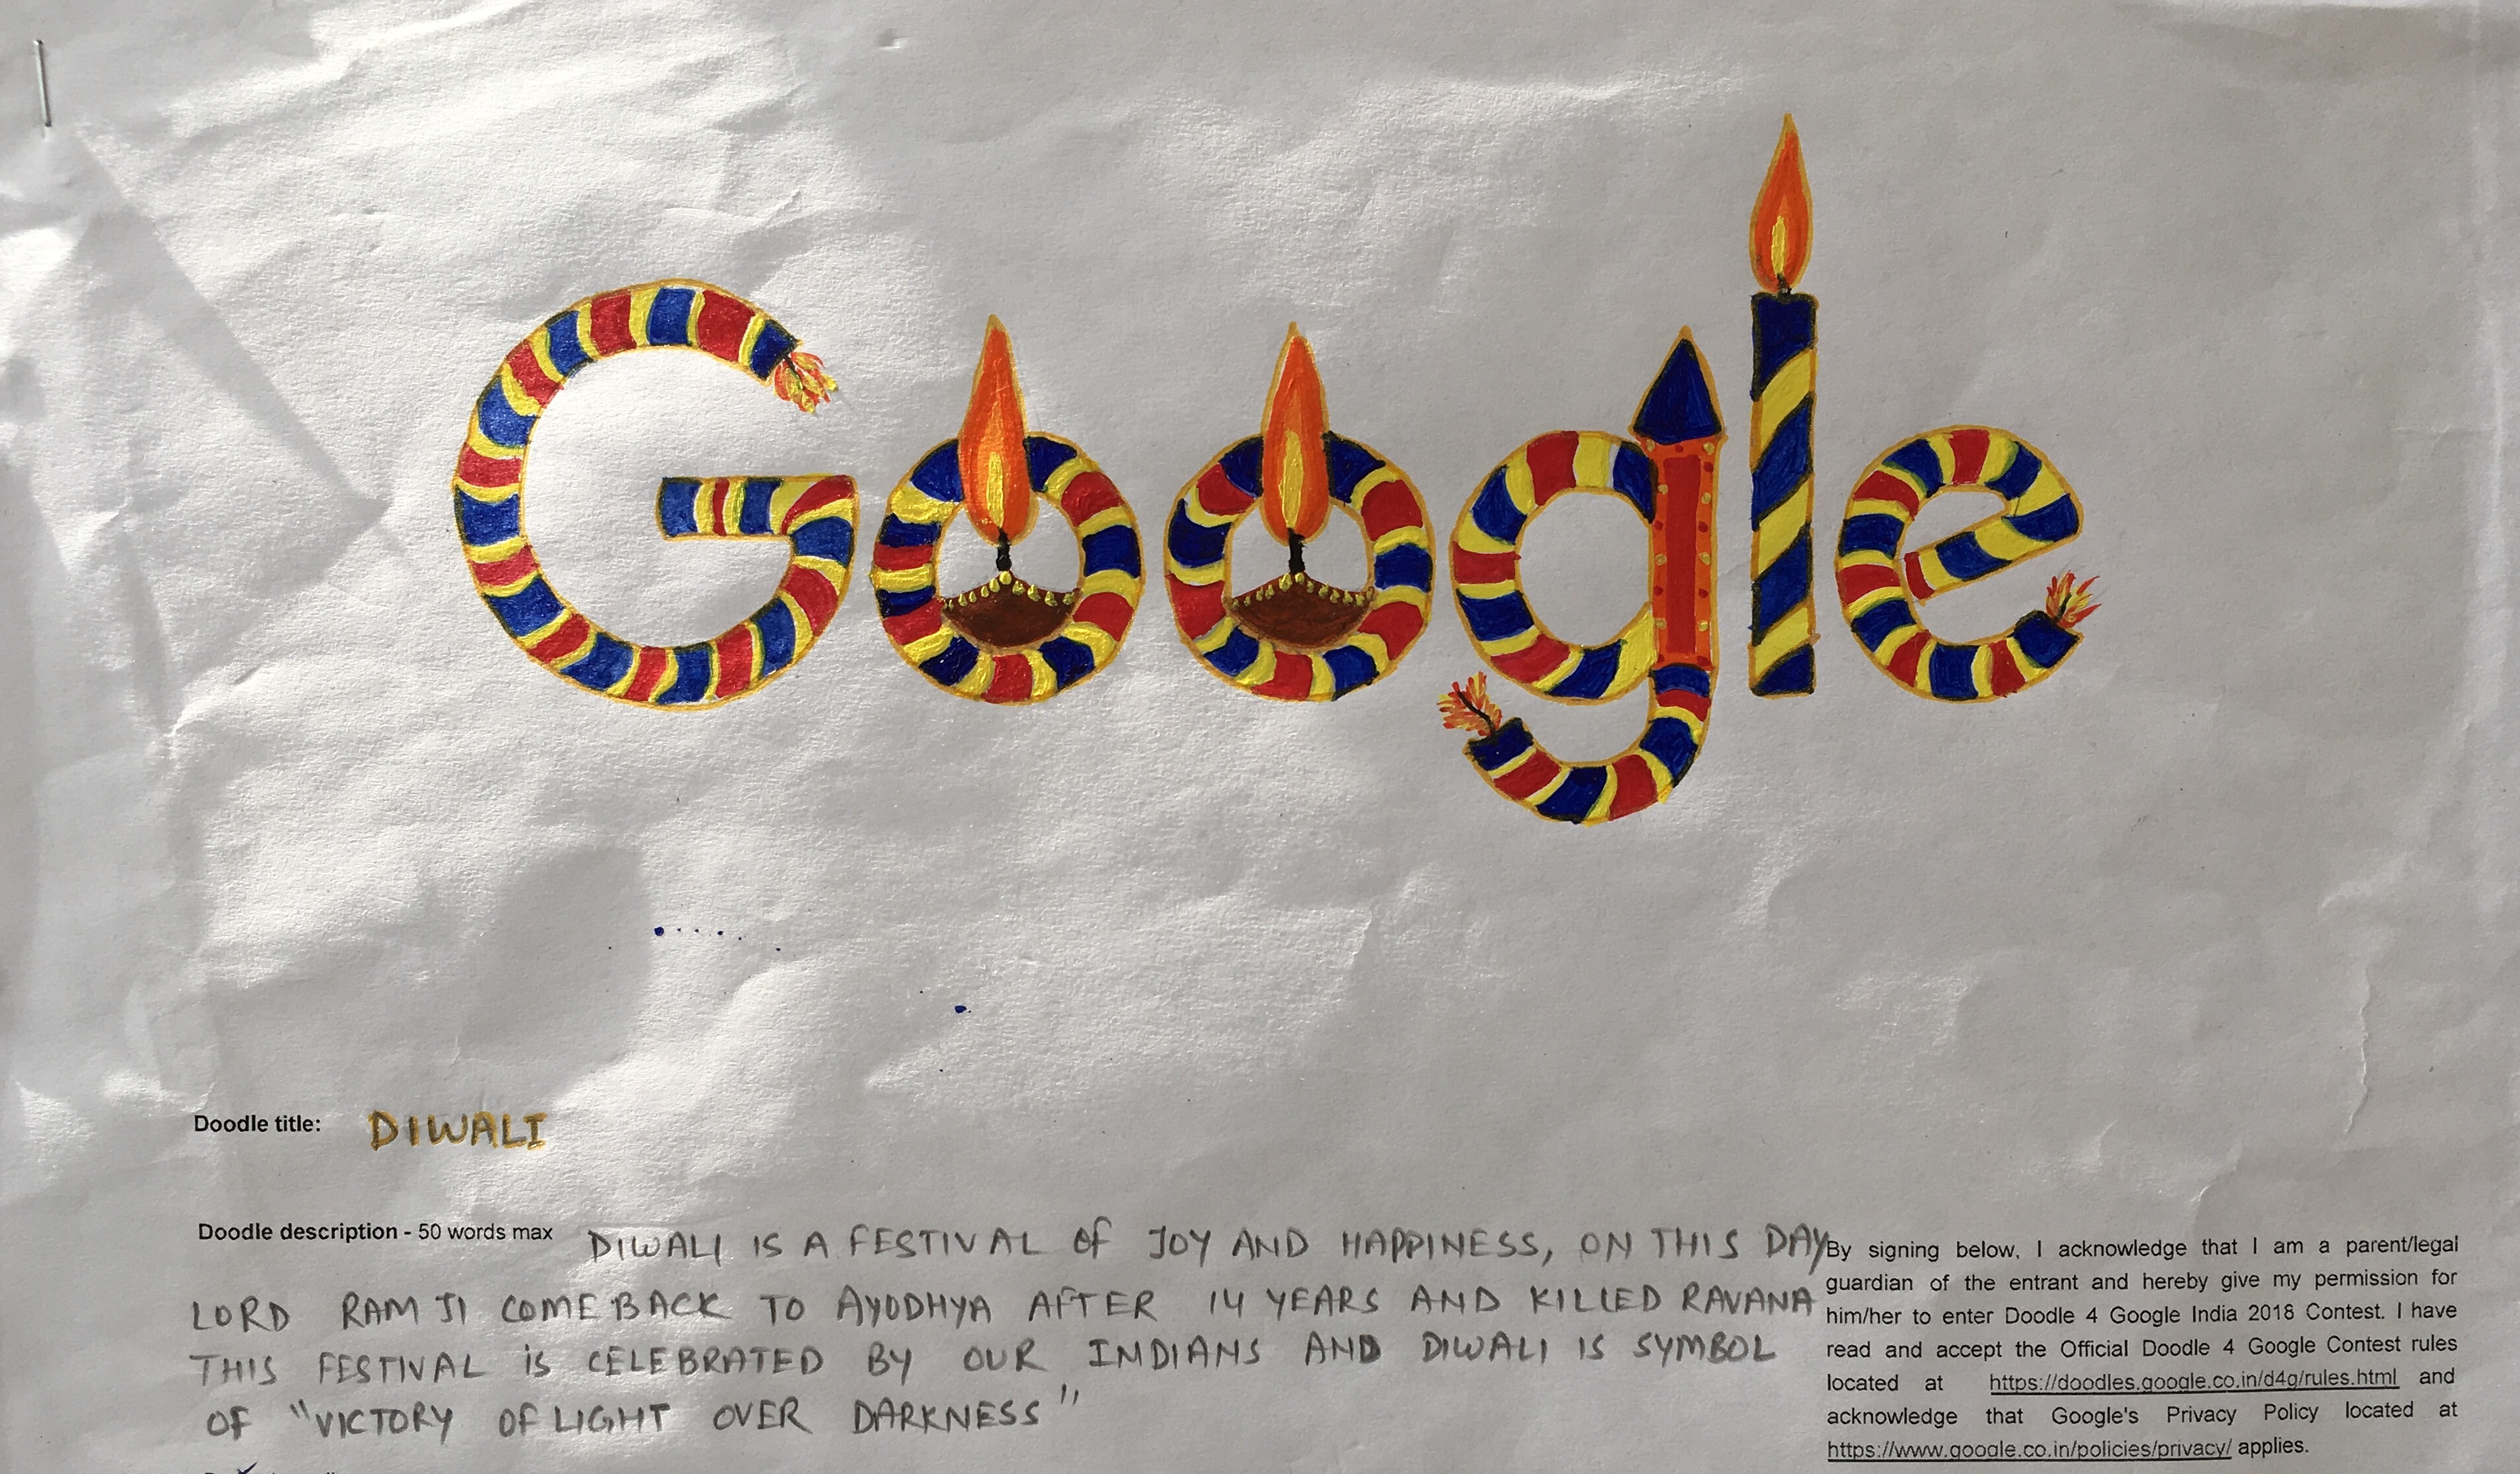 Google
Doodle title: DIWALI
Doodle description - 50 words max DIWALI IS A FESTIVAL OF JOY AND HAPPINESS, ON THIS DAY
LORD RAM JI COME BACK TO AYODHYA AFTER 14 YEARS AND KILLED RAVANA
THIS FESTIVAL iS CELEBRATED BY OUR INDIANS AND DIWALI IS SYMBOL
OF "VICTORY OF LIGHT OVER DARKNESS"
By signing below, I acknowledge that I am a parent/legal
guardian of the entrant and hereby give my permission for
him/her to enter Doodle 4 Google India 2018 Contest. I have
read and accept the Official Doodle 4 Google Contest rules
located at https://doodles.google.co.in/d4g/rules.html and
acknowledge that Google's Privacy Policy located at
https://www.google.co.in/policies/privacy/ applies.